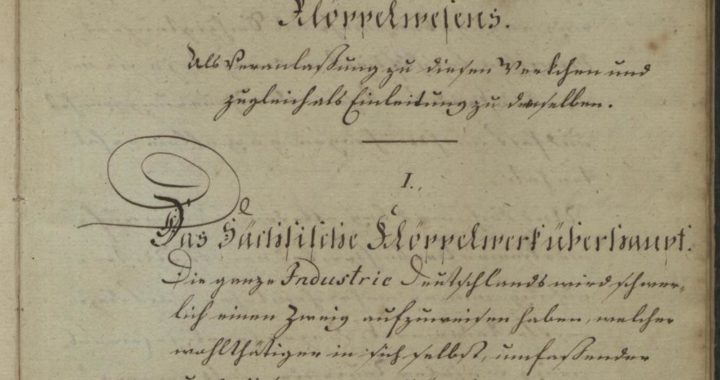 Klöppelwesens.
Als Veranlaßung zu diesen Werkchen und
zugleich als Einleitung zu demselben.
I.
Das Sächsische Klöppelwerk überhaupt.
Die ganze Industrie Deutschlands wird schwer-
lich einen Zweig aufzuweisen haben, welcher
wohlthätiger in sich selbst, umfaßender